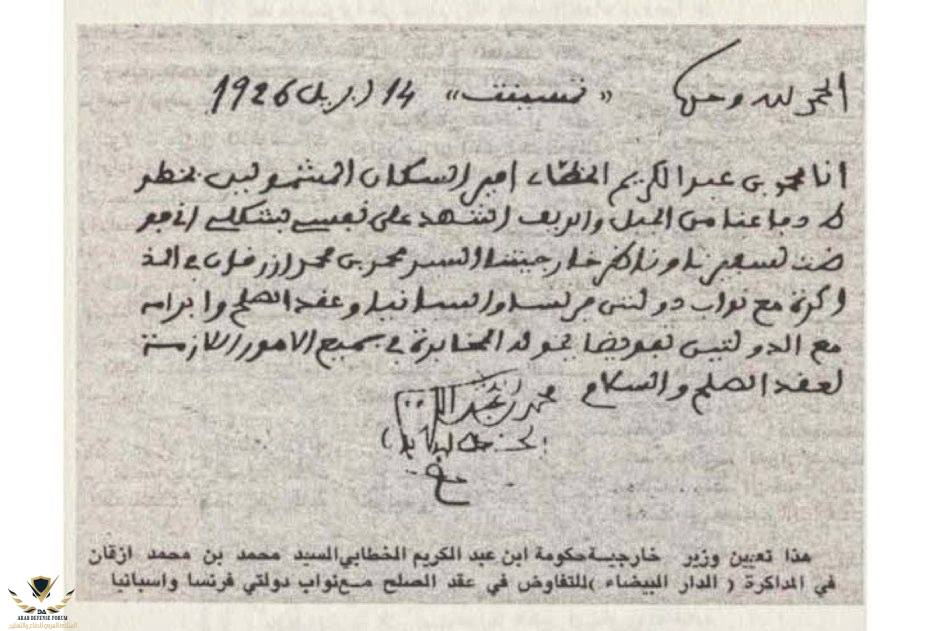 الحمد لله وحده « تمسينت » 14 ابريل 1926
انا محمد بن عبد الكريم الخطابي امير السكان المشمولين بخطر
دفاعنا من الجبل والريف اشهد على نفسي اني فو
ضت لسفيرنا وناظر خارجيتنا السيد محمد بن محمد ازرقان في المذ
اكرة مع نواب دولتي فرنسا واسبانيا وعقد الصلح وابرامه
مع الدولتين تفويضا يخوله المخابرة في جميع الامور اللازمة
لعقد الصلح والسلام
محمد بن عبد الكريم
هذا تعيين وزير خارجية حكومة ابن عبد الكريم الخطابي السيد محمد بن محمد ازقان
في المذاكرة ( الدار البيضاء ) للتفاوض في عقد الصلح مع نواب دولتي فرنسا واسبانيا
DA
ARAB DEFENSE FORUM
المنتدى العربي للدفاع والتسليح